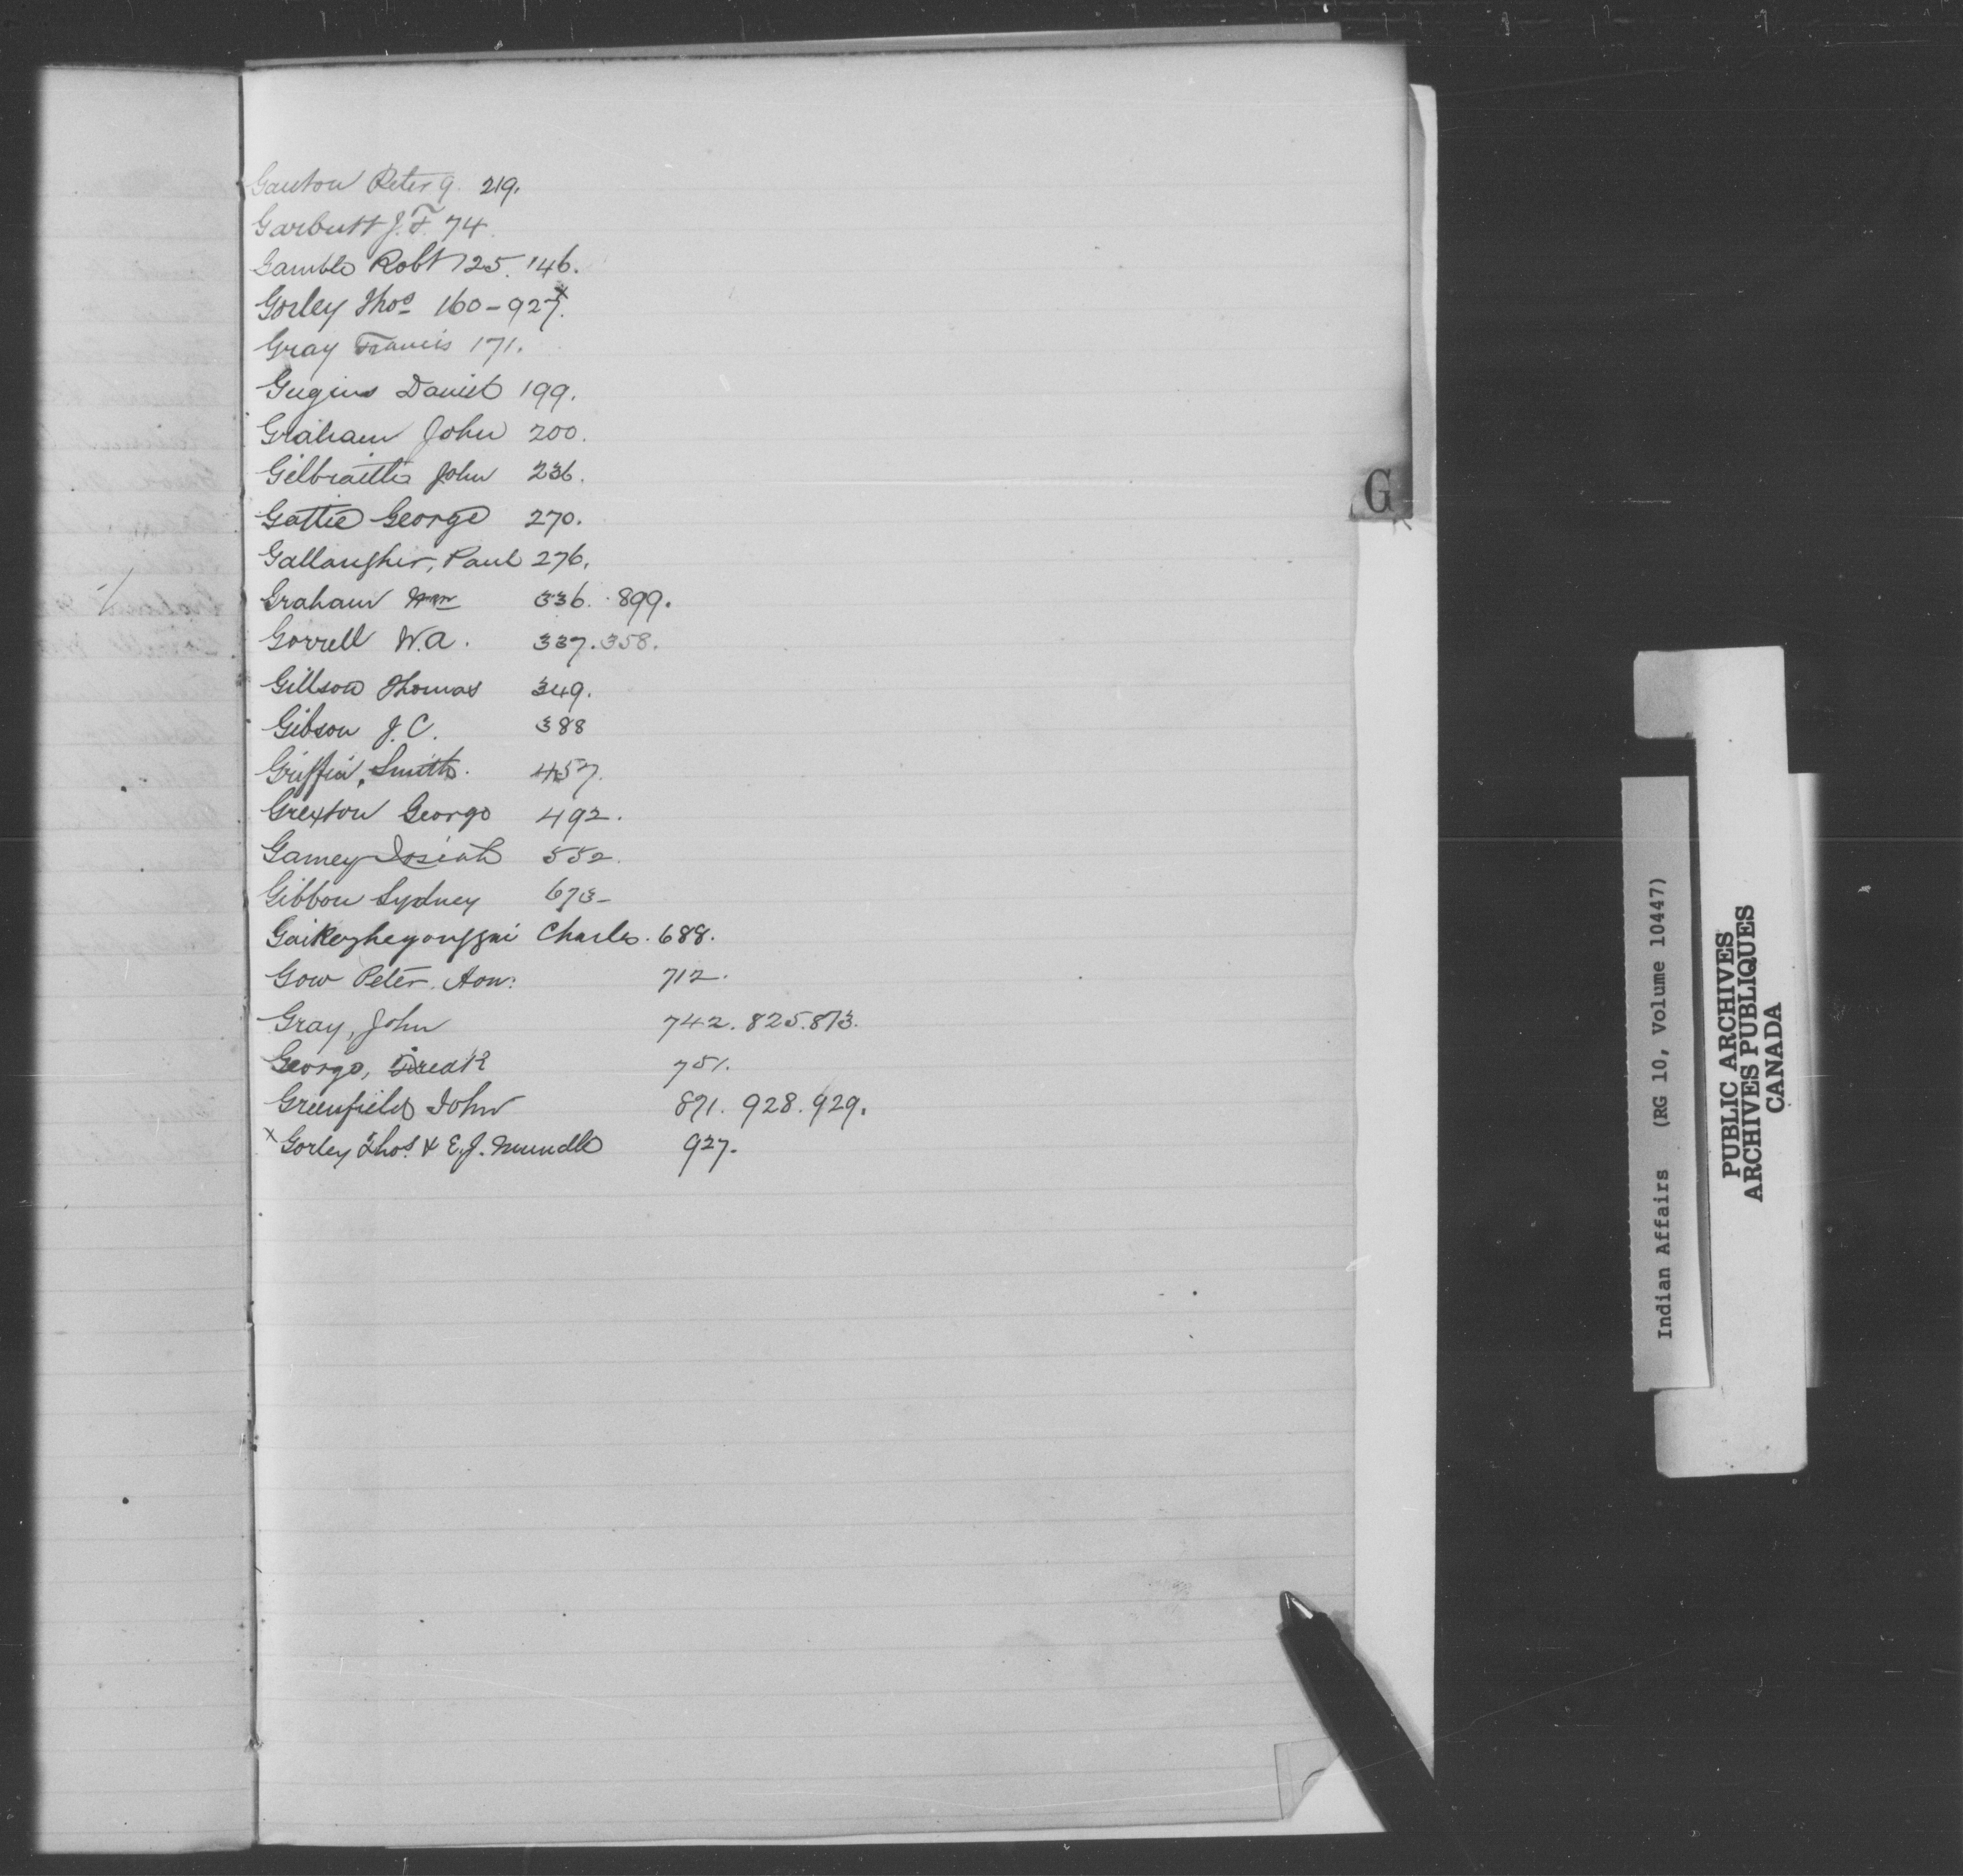 Ganton Peter 9. 219.
Garbutt J.F. 74.
Gamble Robt 125. 146.
Gorley Thos 160-927x.
Gray Francis 171.
Gugins Daniel 199.
Graham John 200.
Gilbraith John 236.
Gattie George 270.
Gallaugher, Paul 276.
Graham Wm 336. 899.
Gorrell W.A. 337. 358.
Gillson Thomas 349.
Gibson J.C. 388
Griffin, Smith. 457.
Grexton George 492.
Gamey Josiah 552.
Gibbon Sydney 673-
Charles. 688.
Gow Peter. Hon: 712.
Gray, John 742. 825. 873.
George, 751.
Greenfield John 871. 928. 929.
x Gorley Thos. & E.J. Mundle 927.
G
Indian Affairs (RG 10, Volume 10447)
PUBLIC ARCHIVES
ARCHIVES PUBLIQUES
CANADA